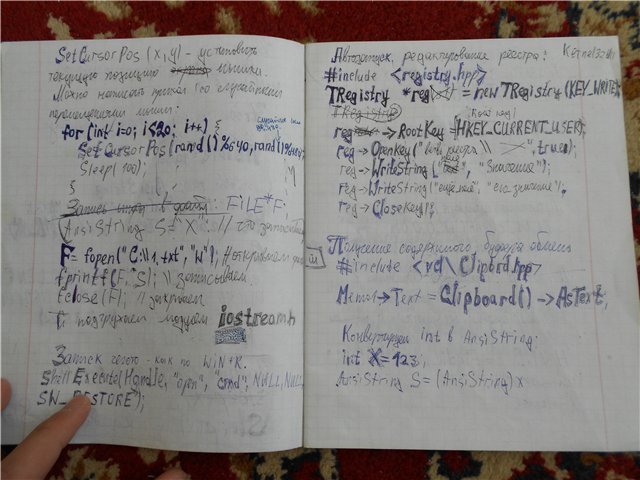 SetCursorPos (x,y) - установить
текущую позицию мышки.
Можно написать прикол со случайным
перемещением мыши:
for (int i=0; i<20; i++) {
SetCursorPos(rand()%640, rand()%480);
Sleep(100);
}
Запись в файл: FILE*F;
AnsiString S="X"; // что записать
F = fopen("C:\\1.txt", "w"); // открываем
fprintf(F, S); \\ записываем
fclose(F); // закрываем
И подгружаем модуль iostream.h
Запуск чего-то - как по WIN+R.
ShellExecute(Handle, "open", "cmd", NULL, NULL,
SW_RESTORE);
Автозапуск, редактирование реестра: Kernel32.dll
#include <registry.hpp>
TRegistry *reg = new TRegistry(KEY_WRITE);
reg -> RootKey = HKEY_CURRENT_USER;
reg -> OpenKey(" \\ ", true);
reg -> WriteString(" ", "Значение");
reg -> WriteString("ещё имя", "его значение");
reg -> CloseKey();
Получение содержимого буфера обмена
#include <vcl\Clipbrd.hpp>
Memo1->Text = Clipboard()->AsText;
Конвертируем int в AnsiString:
int X = 123;
AnsiString S = (AnsiString) x